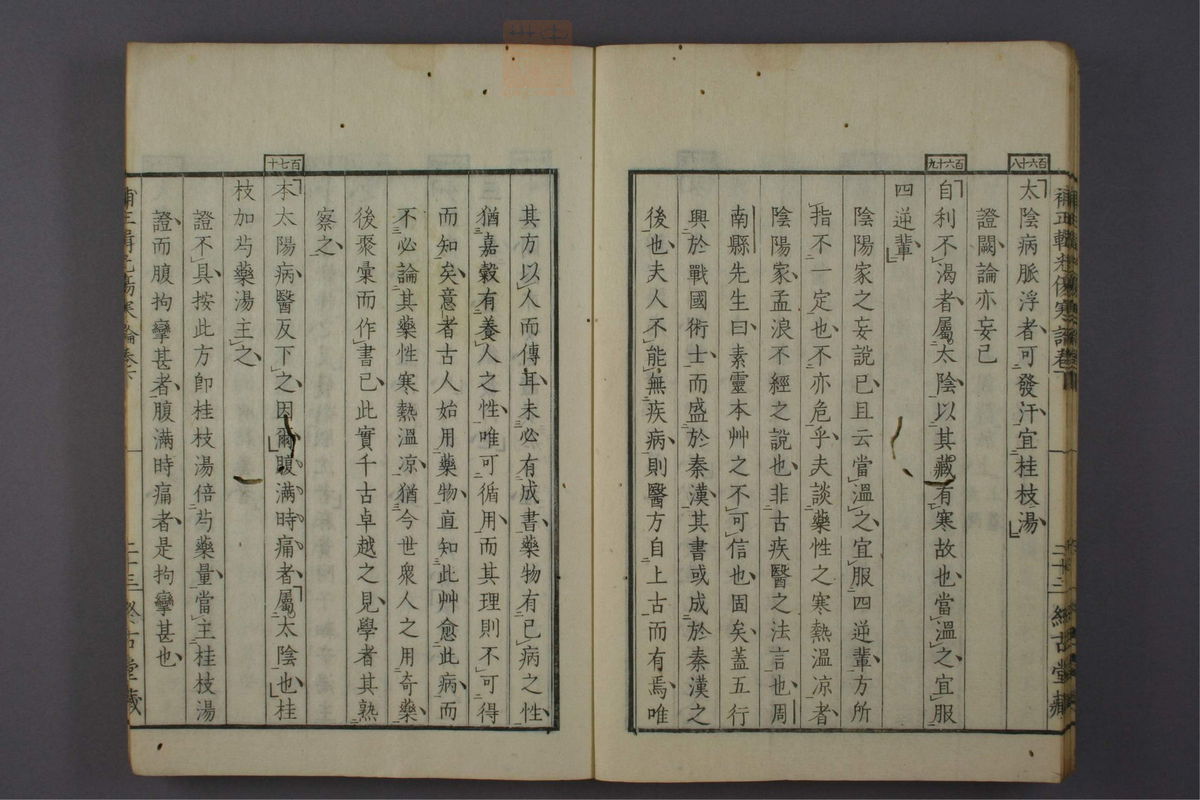 百六十八
太陰病脈浮者可發汗宜桂枝湯
證闕論亦妄已
百六十九
自利不渴者屬太陰以其藏有寒故也當溫之宜服
四逆輩
陰陽家之妄說已且云當溫之宜服四逆輩方所
指不一定也不亦危乎夫談藥性之寒熱溫涼者
陰陽家孟浪不經之說也非古疾醫之法言也周
南縣先生曰素靈本艸之不可信也固矣蓋五行
興於戰國術士而盛於秦漢其書或成於秦漢之
後也夫人不能無疾病則醫方自上古而有焉唯
其方以人而傳耳未必有成書藥物有已病之性
猶嘉穀有養人之性唯可循用而其理則不可得
而知矣意者古人始用藥物直知此艸愈此病而
不必論其藥性寒熱溫凉猶今世衆人之用奇藥
後聚彙而作書已此實千古卓越之見學者其熟
察之
百七十
本太陽病醫反下之因爾腹滿時痛者屬太陰也桂
枝加芍藥湯主之
證不具按此方卽桂枝湯倍芍藥量當主桂枝湯
證而腹拘攣甚者腹滿時痛者是拘攣甚也
二十三